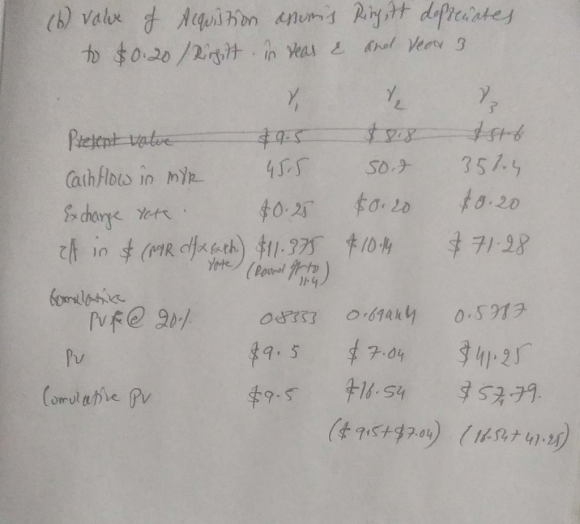 (b) Value of Acquistion assumis Ringitt depreciates
to $0.20 /Ringitt. in Year 2 and Year 3
Y1 Y2 Y3
Present value $9.5 $8.8 $51.6
Cashflow in MYR 45.5 50.7 351.4
Exchange rate. $0.25 $0.20 $0.20
C/f in $ (MYR c/f x Exch. rate) $11.375 $10.14 $71.28
(Round off to 11.4)
Comulative
PVF@ 20% 0.8333 0.69444 0.5787
PV $9.5 $7.04 $41.25
Comulative PV $9.5 $16.54 $57.79.
($9.5+$7.04) (16.54+41.25)